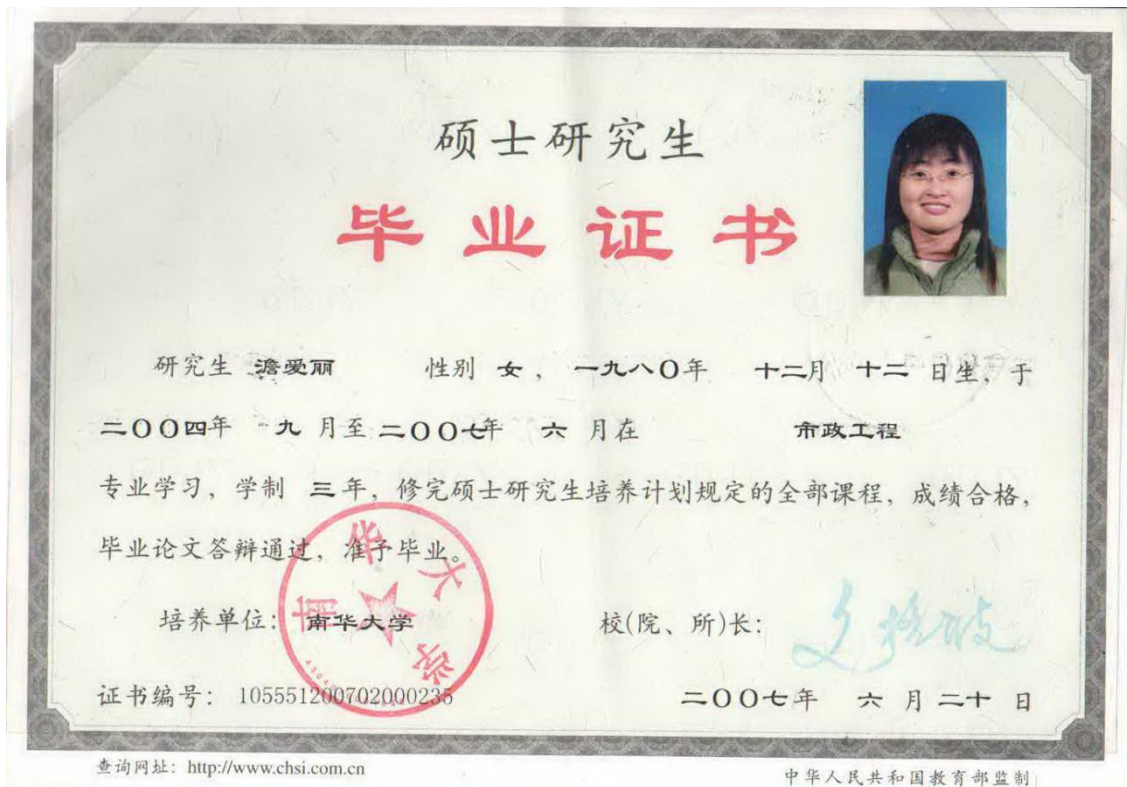 硕士研究生
毕业证书
研究生 澹爱丽 性别 女，一九八〇年 十二月 十二 日生，于
二〇〇四年 九 月至 二〇〇七年 六 月在 市政工程
专业学习，学制 三年，修完硕士研究生培养计划规定的全部课程，成绩合格，
毕业论文答辩通过，准予毕业。
南华大学
培养单位： 南华大学 校(院、所)长：
证书编号： 105551200702000235 二〇〇七年 六 月 二十 日
查询网址：http://www.chsi.com.cn 中华人民共和国教育部监制